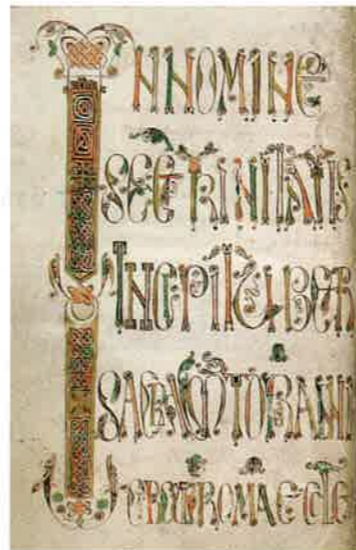 IN NOMINE
SCE TRINITATIS
INCPIT LIBER
SACRAMTORUM
ROMAE